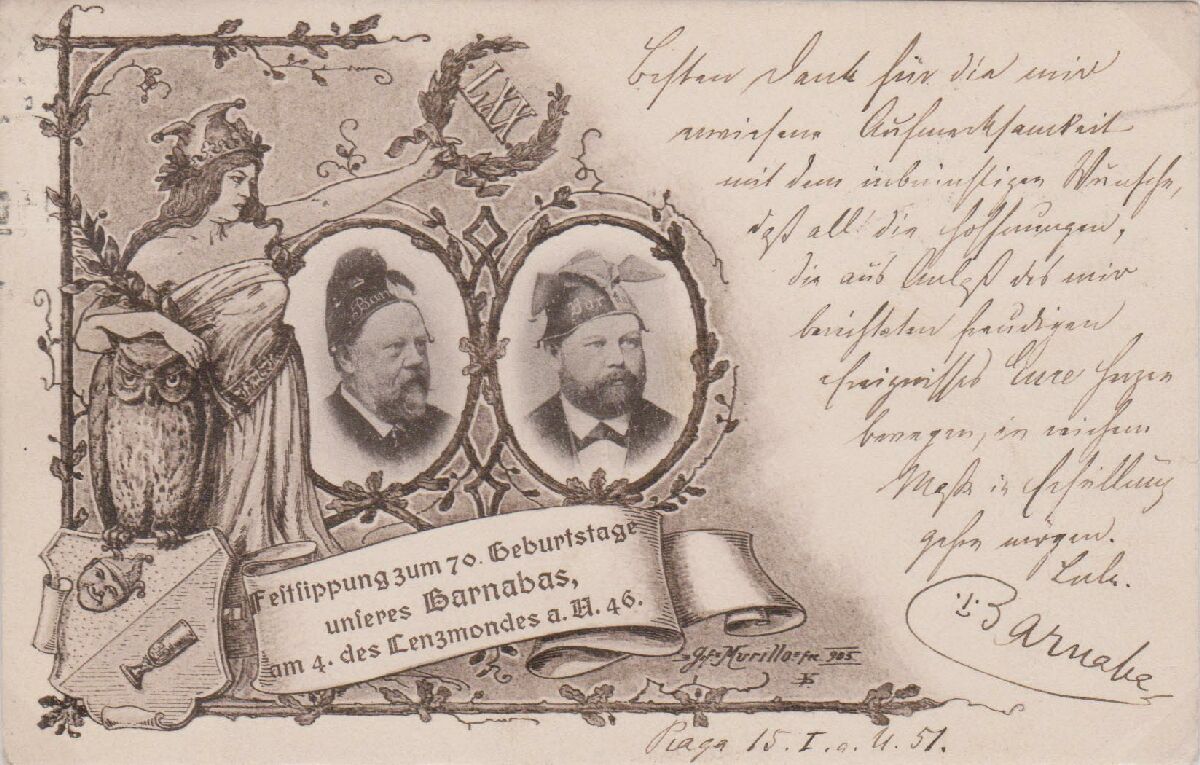 LXX
Bar
Bar
Festsippung zum 70. Geburtstage
unseres Barnabas,
am 4. des Lenzmondes a. U. 46.
Murillo 905
Besten Dank für die mir
erwiesene Aufmerksamkeit
mit dem inbrünstigen Wunsche,
daß all' die Hoffnungen,
die aus Anlaß des mir
berichteten freudigen
Ereignisses Eure Herzen
bewegen, in reichem
Maße in Erfüllung
gehen mögen.
Lulu.
Barnaba
Praga 15. I. a. U. 51.